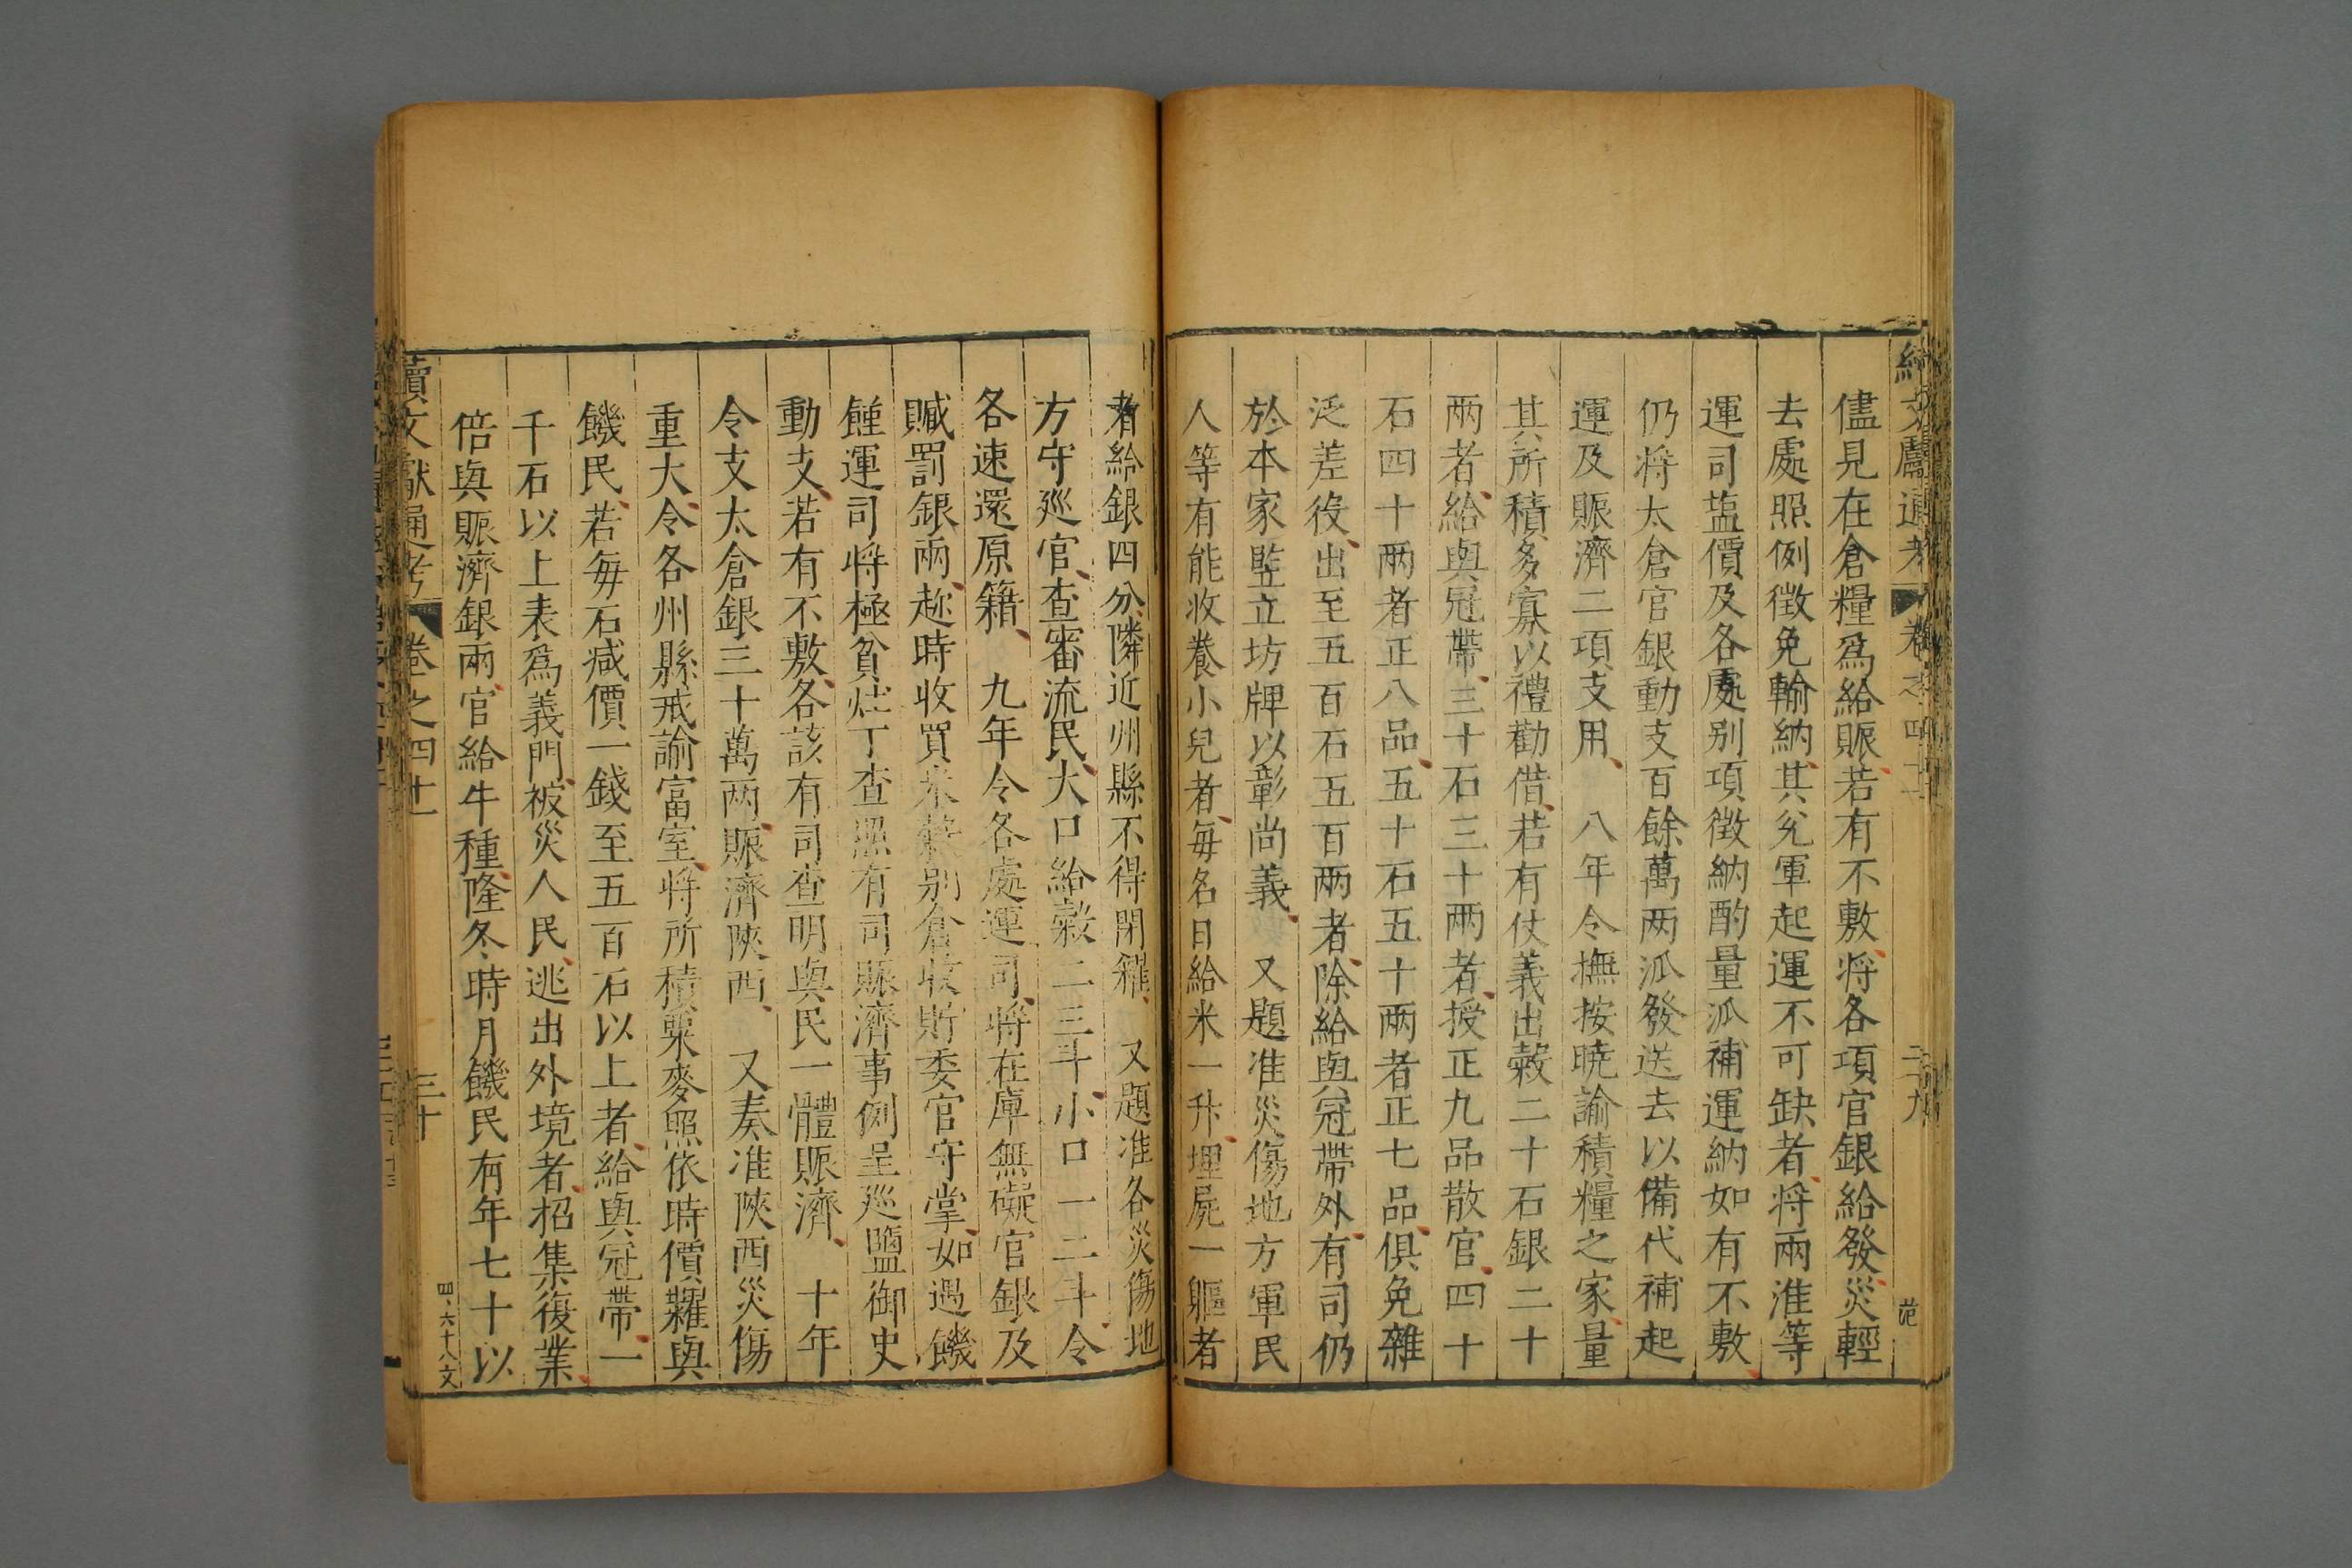 儘見在倉糧爲給賑若有不敷将各項官銀給發災輕
去處照例徴免輸納其兊軍起運不可缺者将兩淮等
運司塩價及各處别項徴納酌量派補運納如有不敷
仍将太倉官銀動支百餘萬兩派發送去以備代補起
運及賑濟二項支用　八年令撫按曉諭積糧之家量
其所積多寡以禮勸借若有仗義出榖二十石銀二十
兩者給與冠帶三十石三十兩者授正九品散官四十
石四十兩者正八品五十石五十兩者正七品俱免雜
泛差役出至五百石五百兩者除給與冠帶外有司仍
於本家竪立坊牌以彰尚義　又題准災傷地方軍民
人等有能收養小兒者每名日給米一升埋屍一軀者
者給銀四分隣近州縣不得閉糴　又題准各災傷地
方守廵官查審流民大口給榖二三斗小口一二斗令
各速還原籍　九年令各處運司将在庫無礙官銀及
贓罰銀兩趂時收買米榖别倉收貯委官守掌如遇饑
饉運司将極貧灶丁查照有司賑濟事例呈廵鹽御史
動支若有不敷各該有司查明與民一體賑濟　十年
令支太倉銀三十萬兩賑濟陝西　又奏准陝西災傷
重大令各州縣戒諭富室将所積粟麥照依時價糶與
饑民若每石減價一錢至五百石以上者給與冠帶一
千石以上表爲義門被災人民逃出外境者招集復業
倍與賑濟銀兩官給牛種隆冬時月饑民有年七十以
續文獻通考　卷之四十一　三十　四六十八文